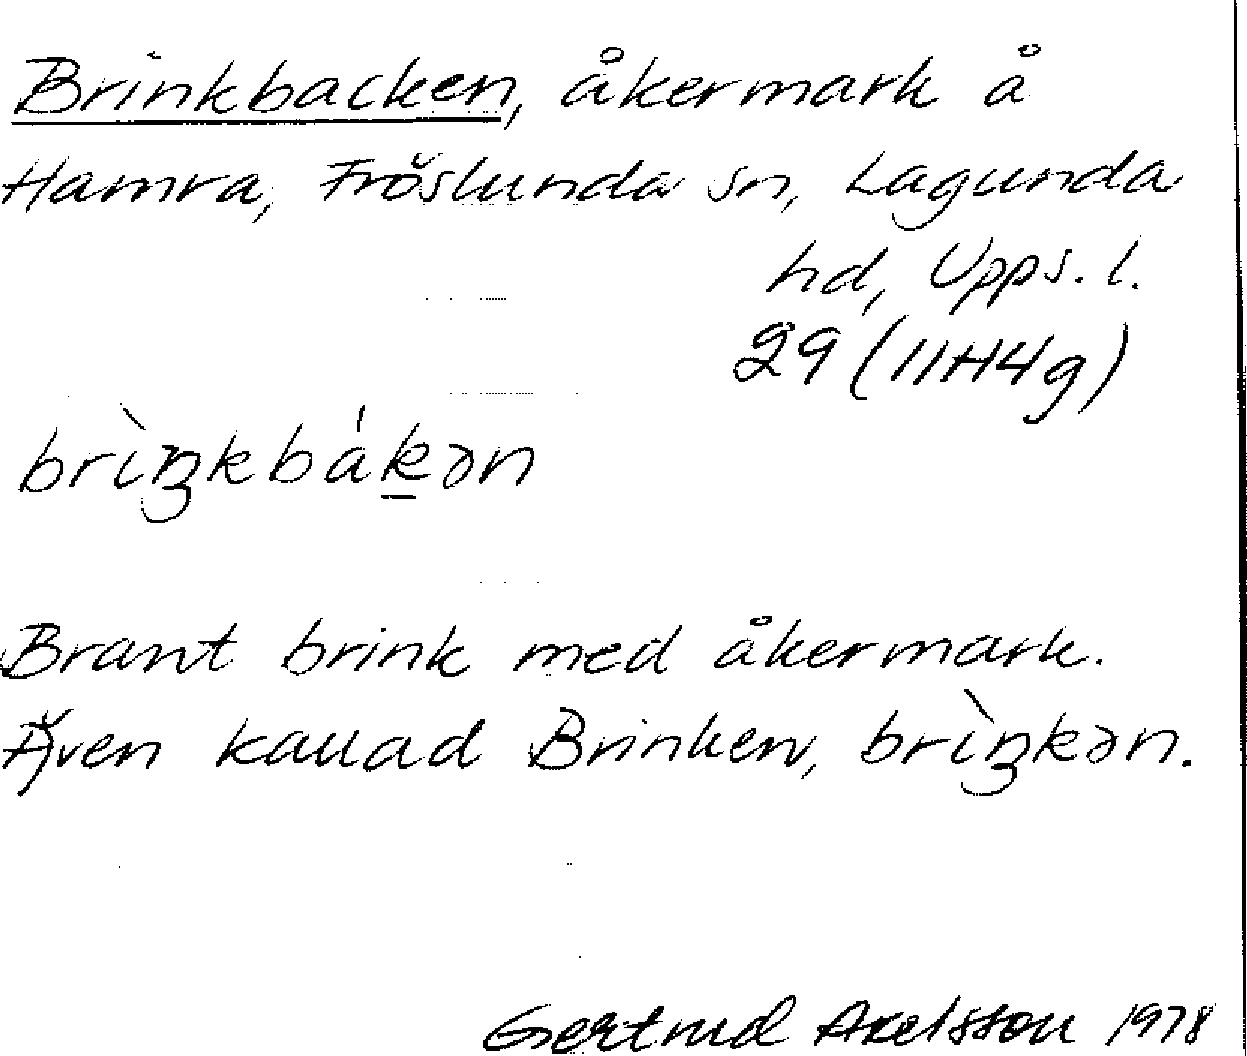 Brinkbacken, åkermark å
Hamra, Fröslunda sn, Lagunda
hd, Upps. l.
29 (11H4g)
brìŋkbákən
Brant brink med åkermark.
Även kallad Brinken, brìŋkən.
Gertrud Axelsson 1978